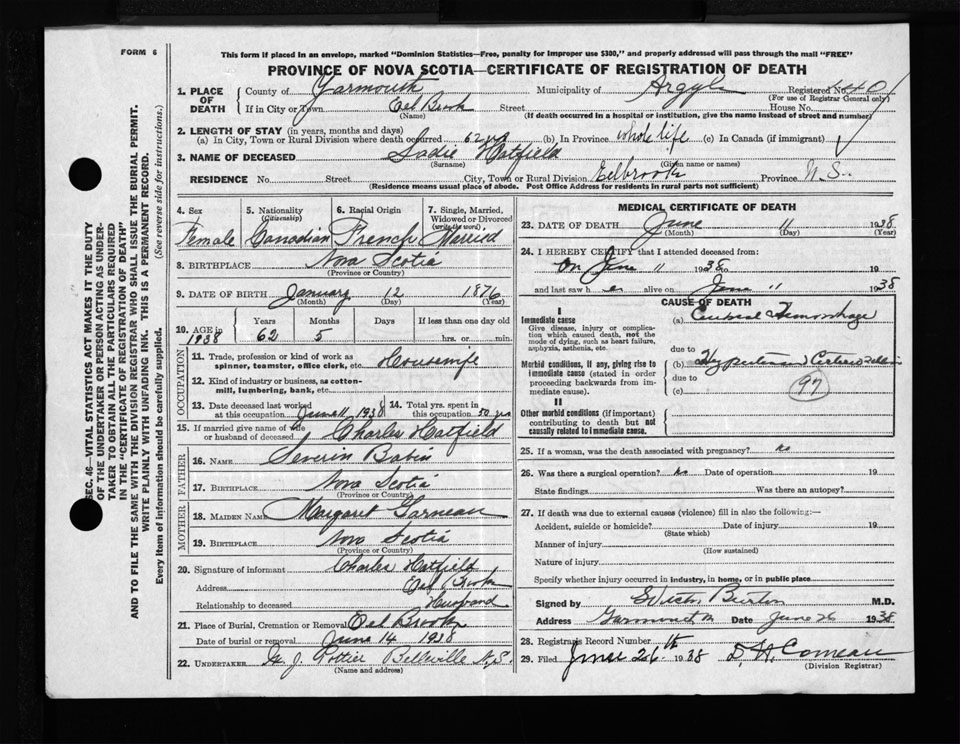 FORM 6
This form if placed in an envelope, marked "Dominion Statistics—Free, penalty for improper use $300," and properly addressed will pass through the mail "FREE"
PROVINCE OF NOVA SCOTIA—CERTIFICATE OF REGISTRATION OF DEATH
1. PLACE OF DEATH County of Yarmouth Municipality of Argyle Registered No. 40
(For use of Registrar General only)
If in City or Town Eel Brook Street House No.
(Name) (If death occurred in a hospital or institution, give the name instead of street and number)
2. LENGTH OF STAY (in years, months and days)
(a) In City, Town or Rural Division where death occurred 62 yrs (b) In Province whole life (c) In Canada (if immigrant)
3. NAME OF DECEASED Sadie Hatfield
(Surname) (Given name or names)
RESIDENCE No. Street City, Town or Rural Division Eelbrook Province N.S.
(Residence means usual place of abode. Post Office Address for residents in rural parts not sufficient)
4. Sex 5. Nationality (Citizenship) 6. Racial Origin 7. Single, Married, Widowed or Divorced (write the word)
Female Canadian French Married
8. BIRTHPLACE Nova Scotia
(Province or Country)
9. DATE OF BIRTH January 12 1876
(Month) (Day) (Year)
10. AGE in 1938 Years Months Days If less than one day
62 5 hrs. or min.
OCCUPATION
11. Trade, profession or kind of work as spinner, teamster, office clerk, etc. Housewife
12. Kind of industry or business, as cotton-mill, lumbering, bank, etc.
13. Date deceased last worked at this occupation June 11 1938 14. Total yrs. spent in this occupation 50 yrs
15. If married give name of wife or husband of deceased Charles Hatfield
FATHER
16. NAME Severin Babin
17. BIRTHPLACE Nova Scotia
(Province or Country)
MOTHER
18. MAIDEN NAME Margaret
19. BIRTHPLACE Nova Scotia
(Province or Country)
20. Signature of informant Charles Hatfield
Address Eel Brook
Relationship to deceased Husband
21. Place of Burial, Cremation or Removal Eel Brook
Date of burial or removal June 14 1938
22. UNDERTAKER G. J. Pottier Belleville N.S.
(Name and address)
MEDICAL CERTIFICATE OF DEATH
23. DATE OF DEATH June 11 1938
(Month) (Day) (Year)
24. I HEREBY CERTIFY that I attended deceased from:
On June 11 1938 to 19
and last saw h er alive on June 11 1938
CAUSE OF DEATH
I
Immediate cause
Give disease, injury or complication which caused death, not the mode of dying, such as heart failure, asphyxia, asthenia, etc.
(a) Cerebral Hemorrhage
due to
Morbid conditions, if any, giving rise to immediate cause (stated in order proceeding backwards from immediate cause).
(b) Hypertension
due to
(c) 97
II
Other morbid conditions (if important) contributing to death but not causally related to immediate cause.
25. If a woman, was the death associated with pregnancy? no
26. Was there a surgical operation? no Date of operation 19
State findings Was there an autopsy?
27. If death was due to external causes (violence) fill in also the following:—
Accident, suicide or homicide? Date of injury 19
(State which)
Manner of injury
(How sustained)
Nature of injury
Specify whether injury occurred in industry, in home, or in public place
Signed by Burton M.D.
Address Yarmouth Date June 26 1938
28. Registrar's Record Number
29. Filed June 26th 1938 D H Comeau
(Division Registrar)
SEC. 46—VITAL STATISTICS ACT MAKES IT THE DUTY
OF THE UNDERTAKER OR PERSON ACTING AS UNDER-
TAKER TO OBTAIN ALL THE PARTICULARS REQUIRED
IN THE "CERTIFICATE OF REGISTRATION OF DEATH"
AND TO FILE THE SAME WITH THE DIVISION REGISTRAR WHO SHALL ISSUE THE BURIAL PERMIT.
WRITE PLAINLY WITH UNFADING INK. THIS IS A PERMANENT RECORD.
Every item of information should be carefully supplied. (See reverse side for instructions.)